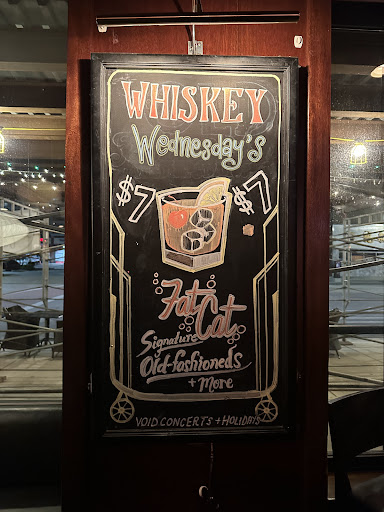 WHISKEY
Wednesday's
$7 $7
Fat Cat
Signature
Old-fashioneds
+ More
VOID CONCERTS + HOLIDAYS